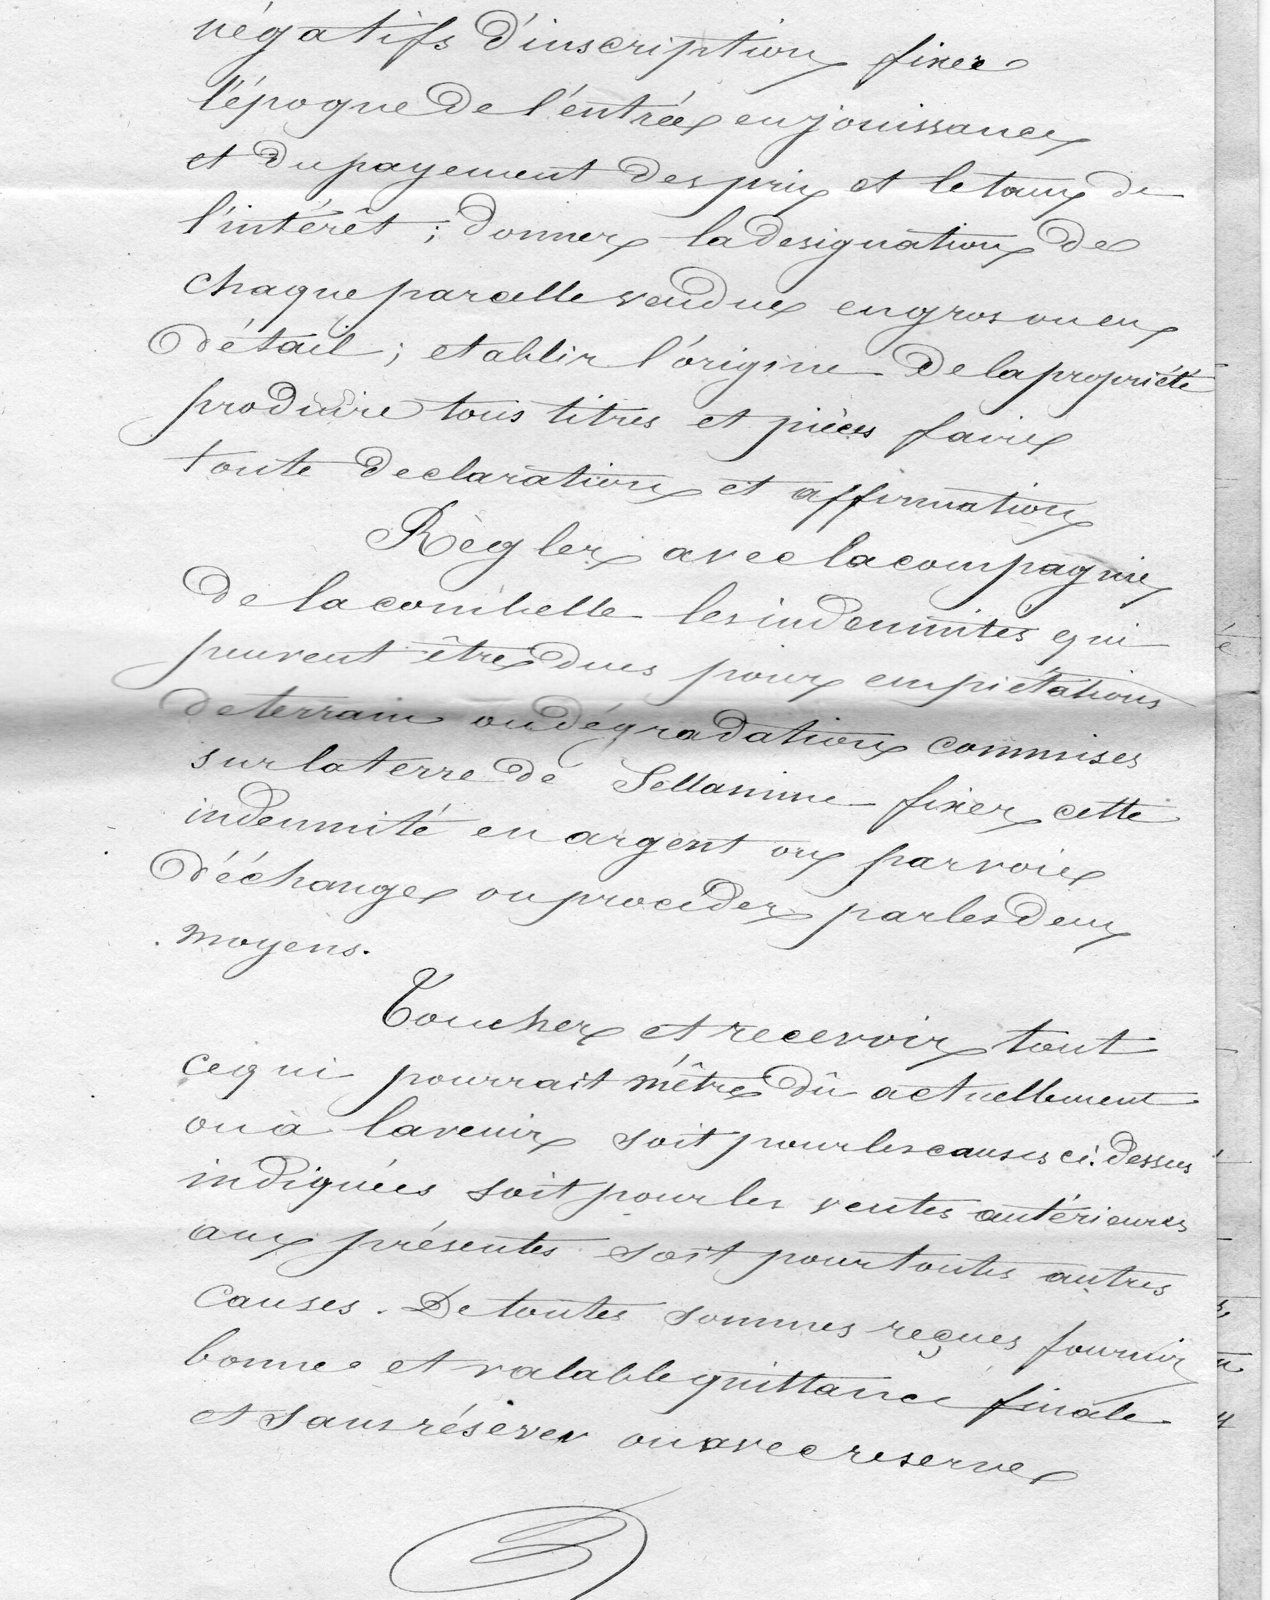 négatifs d'inscription fixer
l'époque de l'entrée en jouissance
et du payement des prix et le taux de
l'intérêt ; donner la designation de
chaque parcelle vendue en gros ou en
détail ; etablir l'origine de la propriété
produire tous titres et pièces faire
toute declaration et affirmation
Règler avec la compagnie
de la combelle les indemnités qui
peuvent être dues pour empiétations
de terrain ou dégradation commises
sur la terre de Sellamine fixer cette
indemnité en argent ou par voie
d'échange ou procéder par les deux
moyens.
Toucher et recevoir tout
ce qui pourrait m'être dû actuellement
ou à lavenir soit pour les causes ci. dessus
indiquées soit pour les ventes antérieures
aux présentes soit pour toutes autres
causes. De toutes sommes reçues fournir
bonne et valable quittance finale
et sans réserver ou avec reserve